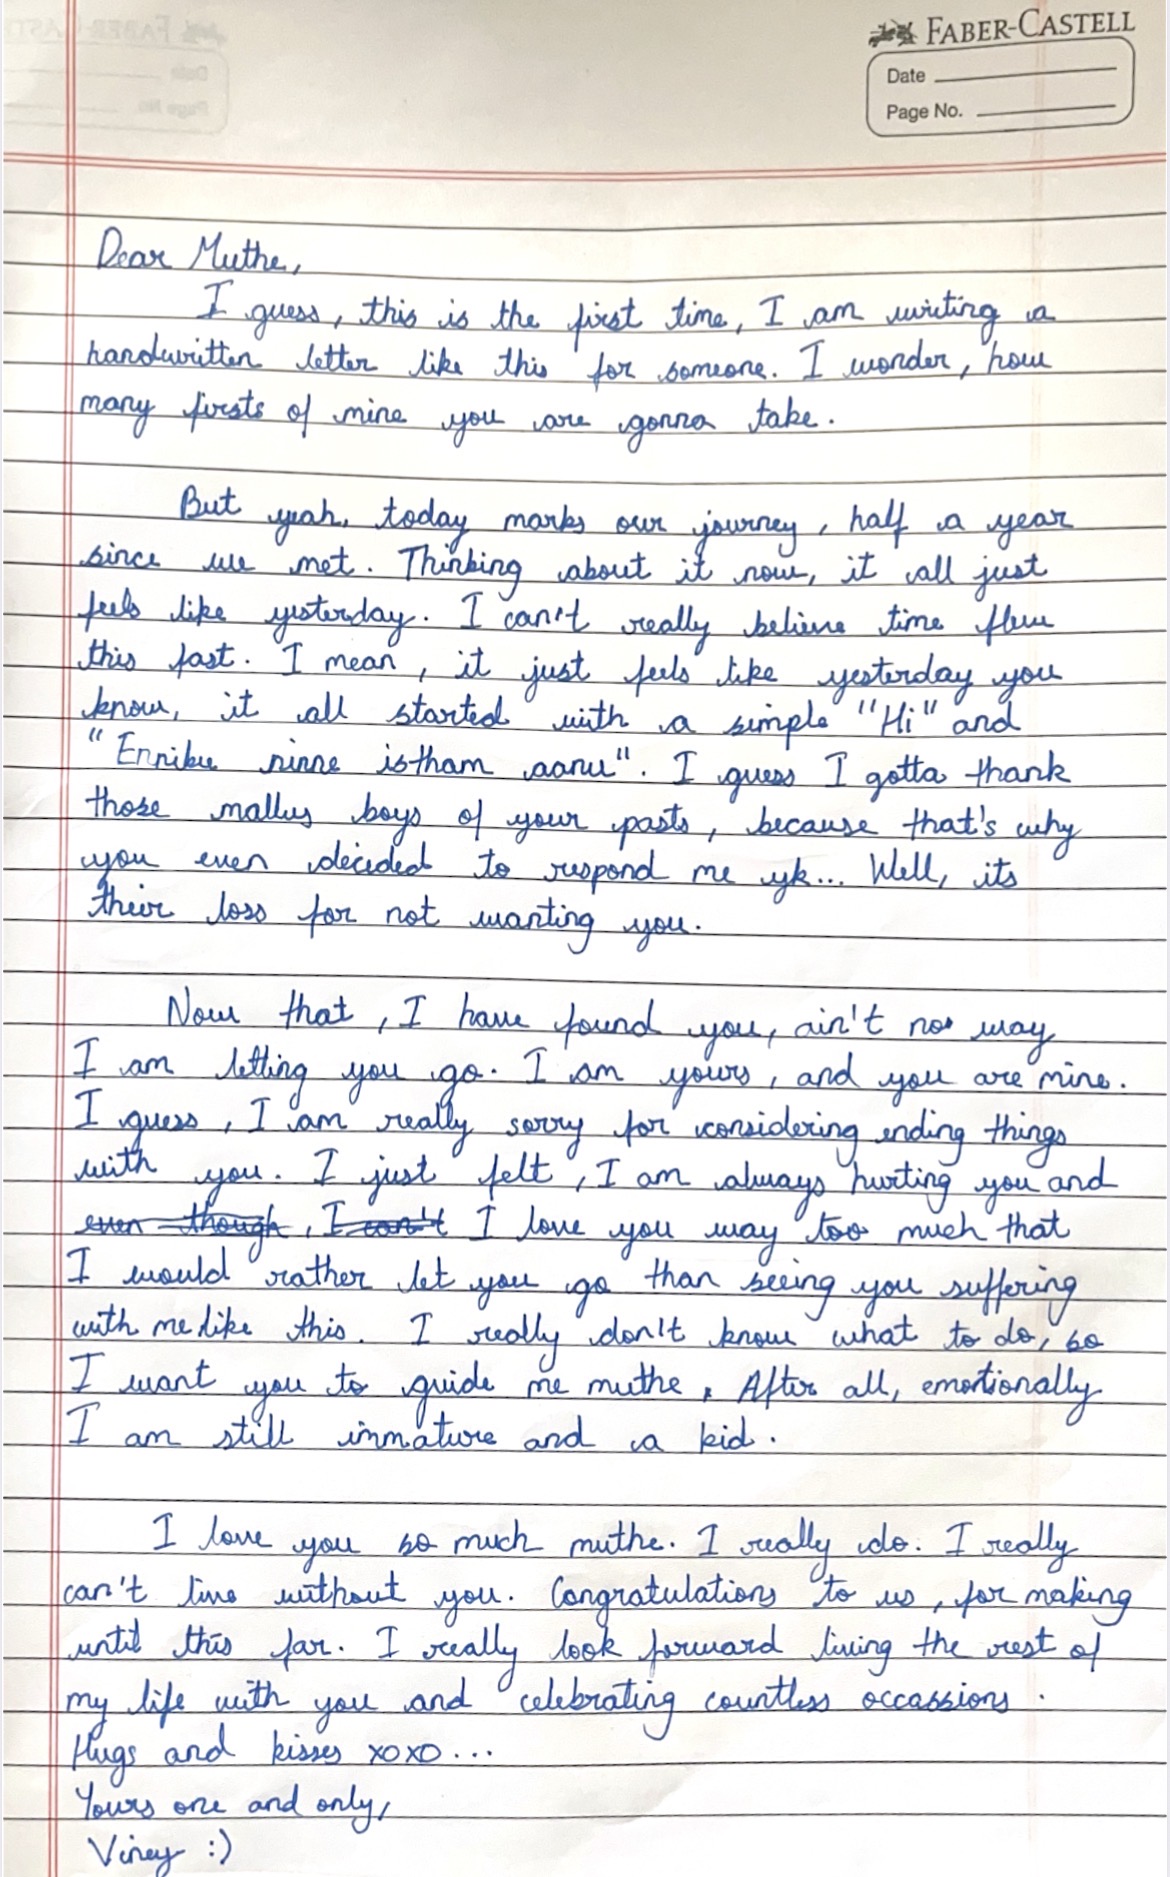 FABER-CASTELL
Date
Page No.
Dear Muthe,
I guess, this is the first time, I am writing a
handwritten letter like this for someone. I wonder, how
many firsts of mine you are gonna take.
But yeah, today marks our journey, half a year
since we met. Thinking about it now, it all just
feels like yesterday. I can't really believe time flew
this fast. I mean, it just feels like yesterday you
know, it all started with a simple "Hi" and
"Enniku ninne istham aanu". I guess I gotta thank
those mallus boys of your pasts, because that's why
you even decided to respond me yk... Well, its
their loss for not wanting you.
Now that, I have found you, ain't no way
I am letting you go. I am yours, and you are mine.
I guess, I am really sorry for considering ending things
with you. I just felt, I am always hurting you and
even though, I can't I love you way too much that
I would rather let you go than seeing you suffering
with me like this. I really don't know what to do, so
I want you to guide me muthe. After all, emotionally
I am still immature and a kid.
I love you so much muthe. I really do. I really
can't live without you. Congratulations to us, for making
until this far. I really look forward living the rest of
my life with you and celebrating countless occassions.
Hugs and kisses xoxo...
Yours one and only,
Viney :)